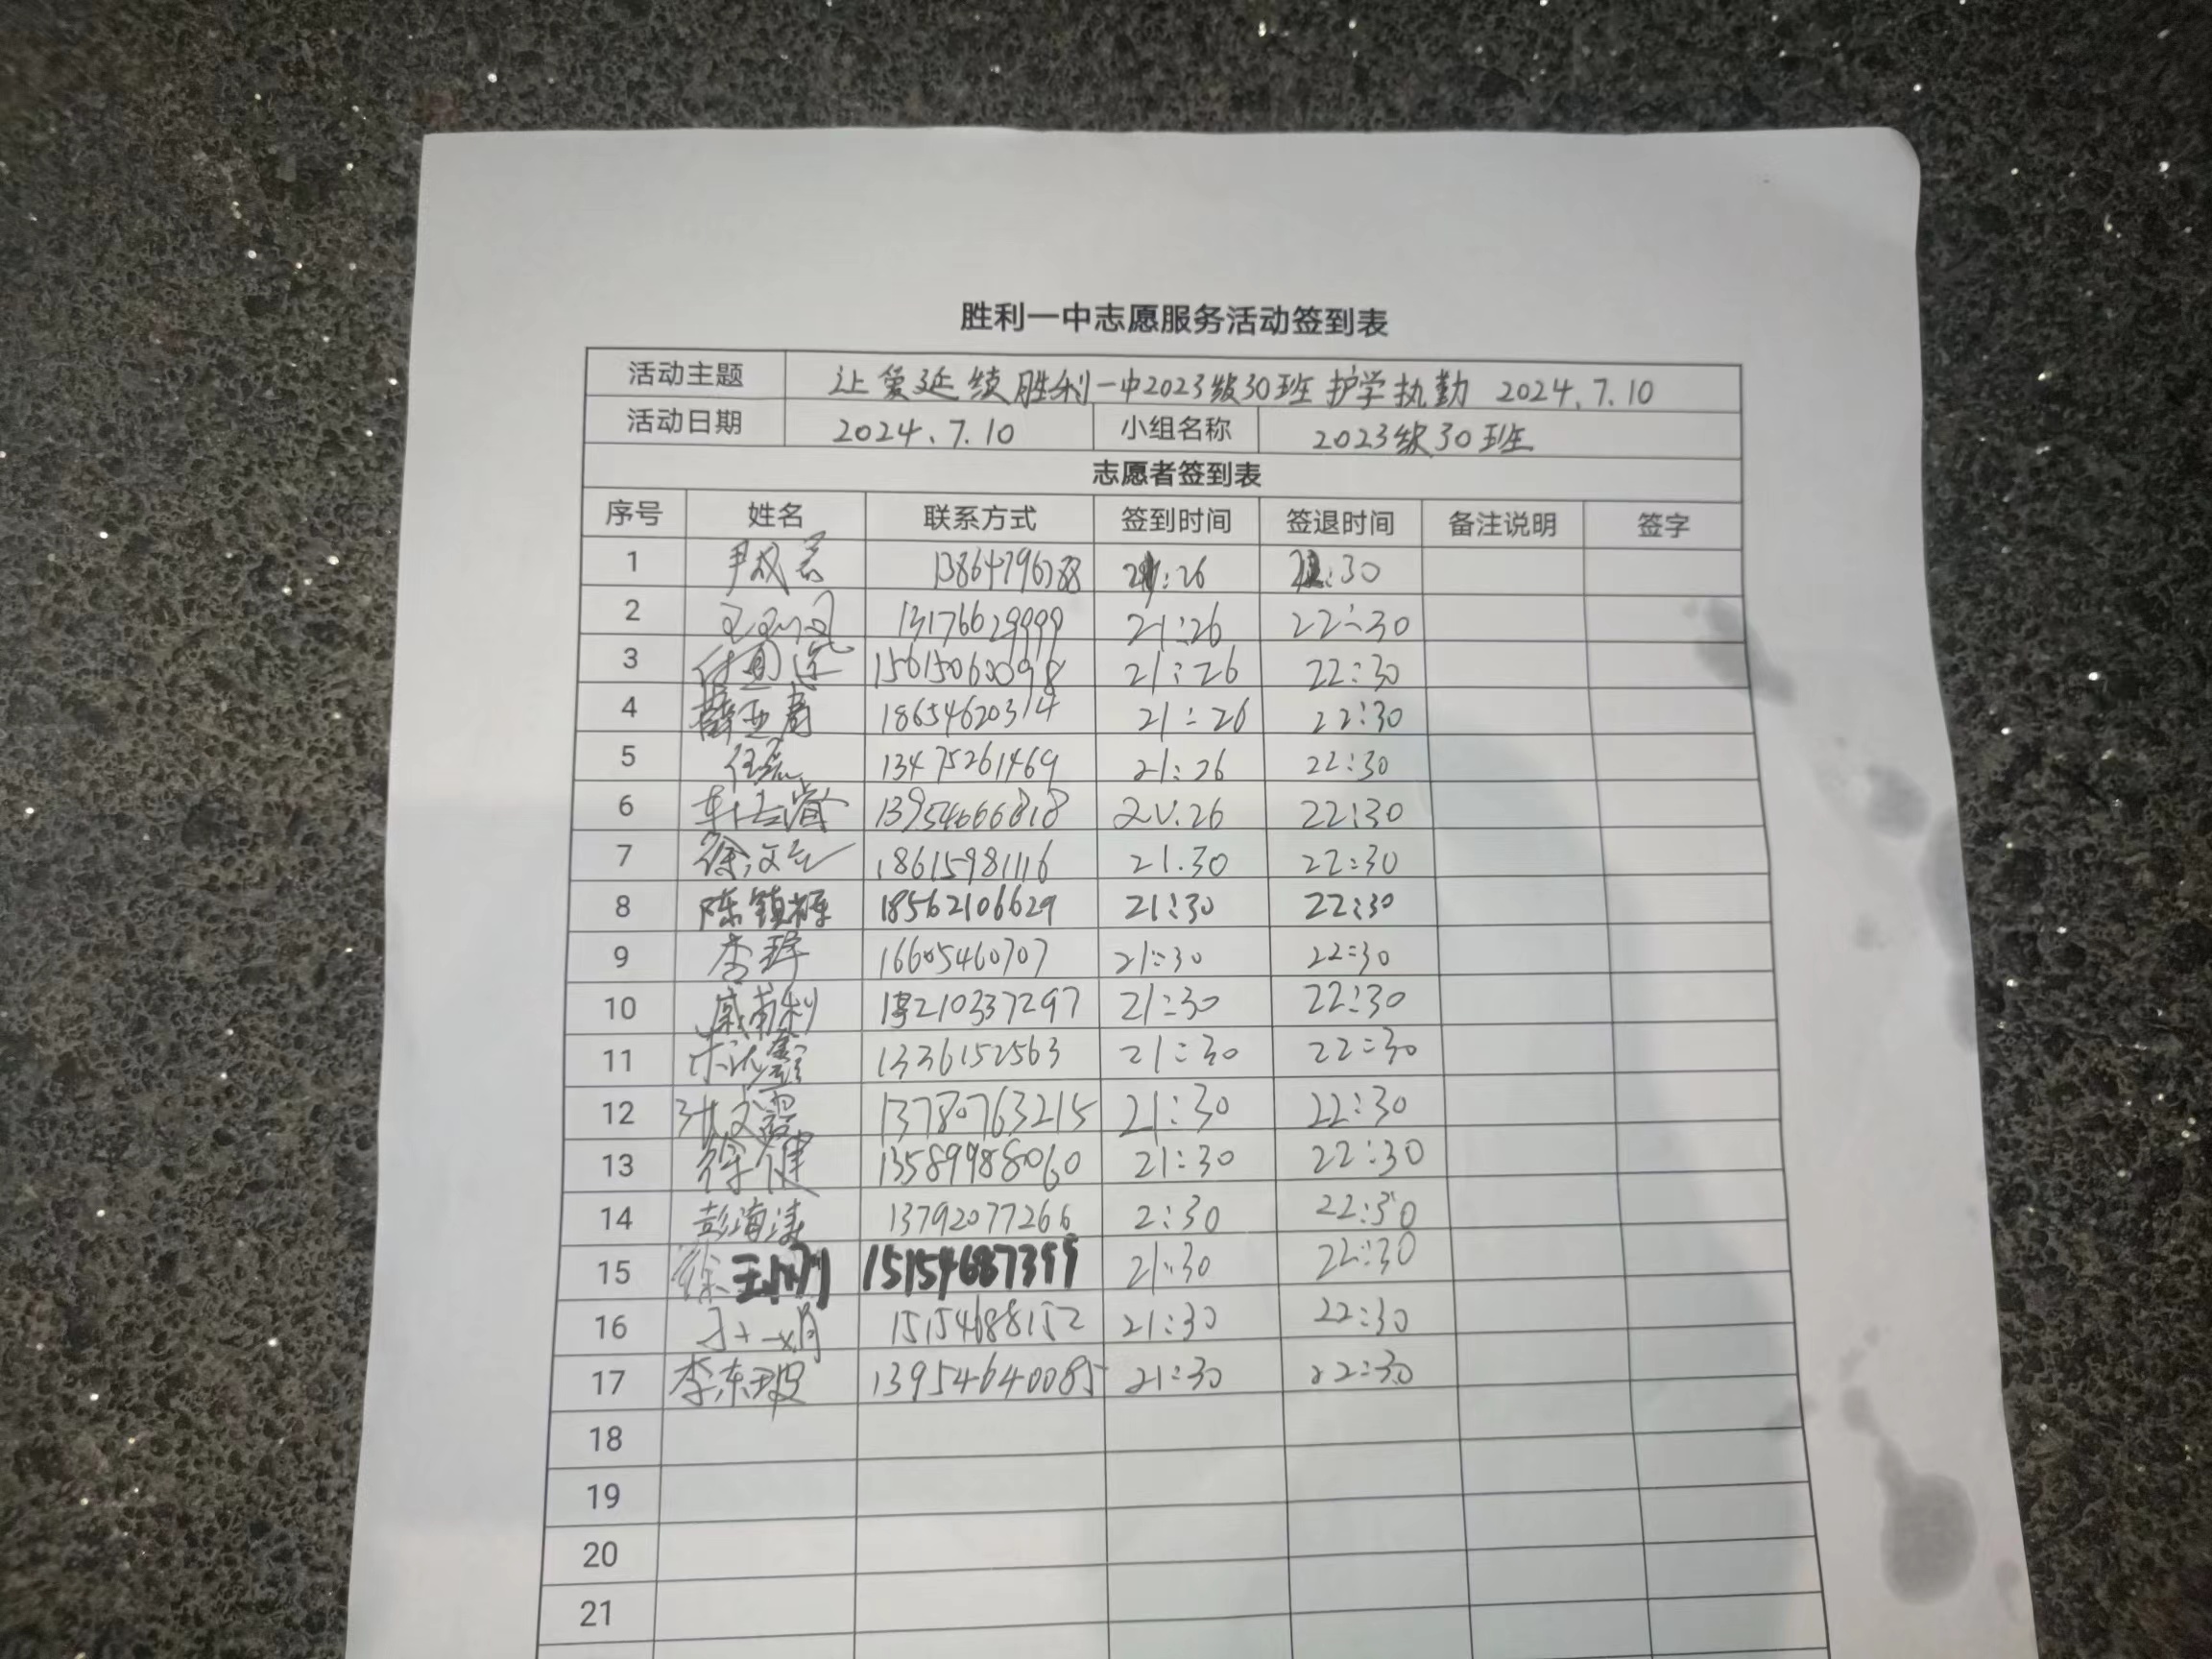 胜利一中志愿服务活动签到表
活动主题 让爱延续胜利一中2023级30班护学执勤 2024.7.10
活动日期 2024.7.10 小组名称 2023级30班
志愿者签到表
序号 姓名 联系方式 签到时间 签退时间 备注说明 签字
1 :26 :30
2 13176629999 21:26 22:30
3 15615060098 21:26 22:30
4 薛亚寿 18654620314 21:26 22:30
5 任磊 13475261469 21:26 22:30
6 13954666818 26 22:30
7 18615981116 21.30 22:30
8 陈镇 18562106629 21:30 22:30
9 李 16605460707 21:30 22:30
10 210337297 21:30 22:30
11 鑫 1336152563 21:30 22:30
12 张文 13780763215 21:30 22:30
13 徐健 13589988060 21:30 22:30
14 彭海涛 13792077266 2:30 22:30
15 徐 15154687399 21:30 22:30
16 15154688152 21:30 22:30
17 李东玻 13954640085 21:30 22:30
18
19
20
21